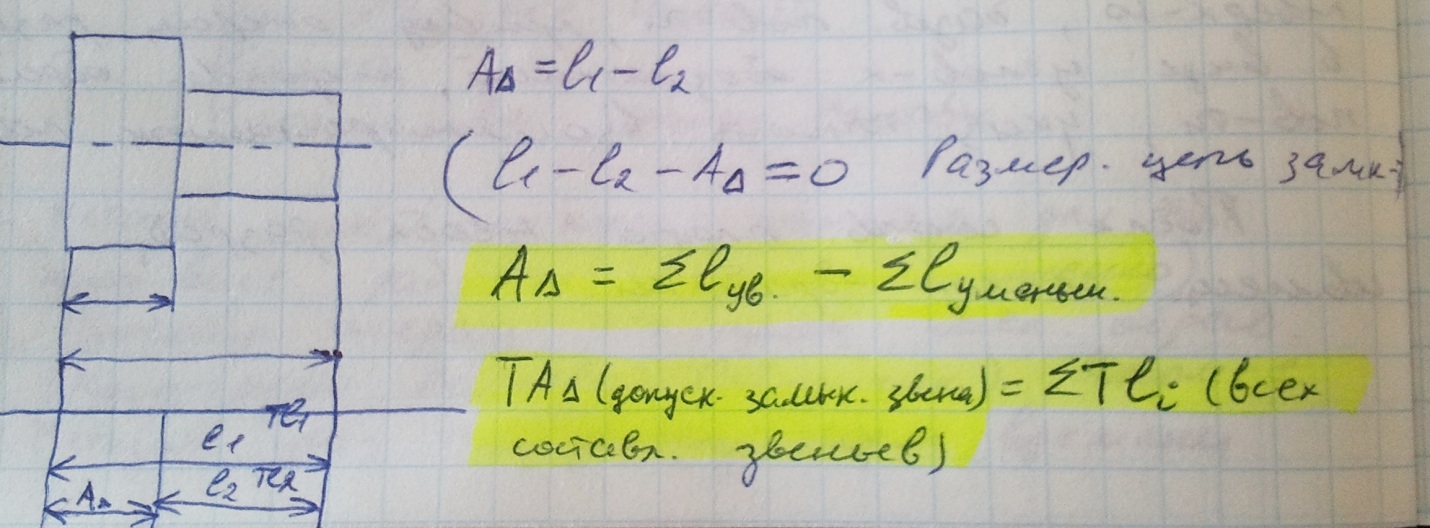 AΔ = l1 − l2
( l1 − l2 − AΔ = 0 Размер. цепь замк-
AΔ = Σlув. − Σlуменьш.
TAΔ (допуск. замык. звена) = ΣTli (всех
составл. звеньев)
l1 Tl1
l2 Tl2
AΔ